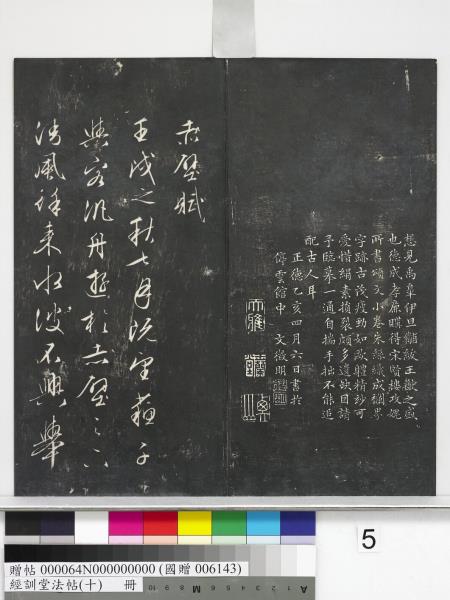 想見禹臯伊旦黼紱王猷之盛
也德成孝廉購得宋賢樓攻媿
所書頌文小卷朱絲織成欄界
字跡古茂疲勁如歐體精妙可
愛惜絹素損裂頗多遺缺因請
予臨摹一通自揣手拙不能追
配古人耳
正德乙亥四月六日書於
停雲館中 文徵明
赤壁賦
壬戌之秋七月既望蘇子
與客汎舟遊於赤壁之下
清風徐來水波不興舉
5
贈帖 000064N000000000 (國贈 006143)
經訓堂法帖(十) 冊